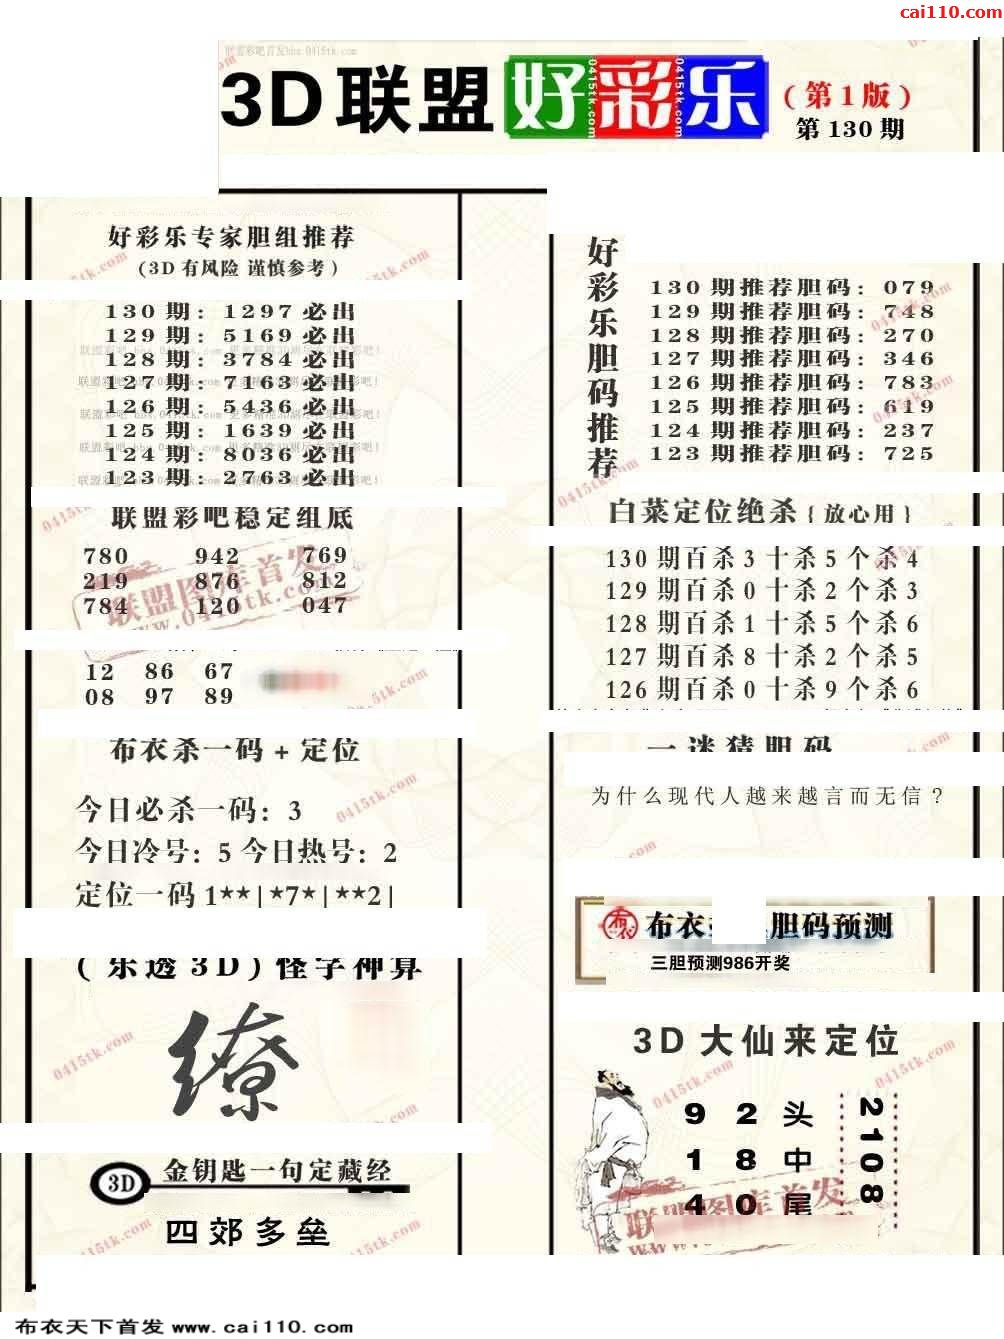 cai110.com
3D联盟 好彩乐 (第1版)
第130期
好彩乐专家胆组推荐
(3D有风险 谨慎参考)
130期: 1297必出
129期: 5169必出
128期: 3784必出
127期: 7163必出
126期: 5436必出
125期: 1639必出
124期: 8036必出
123期: 2763必出
联盟彩吧稳定组底
780 942 769
219 876 812
784 120 047
12 86 67
08 97 89
布衣杀一码+定位
今日必杀一码: 3
今日冷号: 5 今日热号: 2
定位一码 1**|*7*|**2|
(乐透3D)怪字神算
缭
3D 金钥匙一句定藏经
四郊多垒
好彩乐胆码推荐
130期推荐胆码: 079
129期推荐胆码: 748
128期推荐胆码: 270
127期推荐胆码: 346
126期推荐胆码: 783
125期推荐胆码: 619
124期推荐胆码: 237
123期推荐胆码: 725
白菜定位绝杀{放心用}
130期百杀3十杀5个杀4
129期百杀0十杀2个杀3
128期百杀1十杀5个杀6
127期百杀8十杀2个杀5
126期百杀0十杀9个杀6
一迷猜胆码
为什么现代人越来越言而无信?
布衣 胆码预测
三胆预测986开奖
3D大仙来定位
9 2头
1 8中
4 0尾
2108
联盟图库首发
布衣天下首发 www.cai110.com